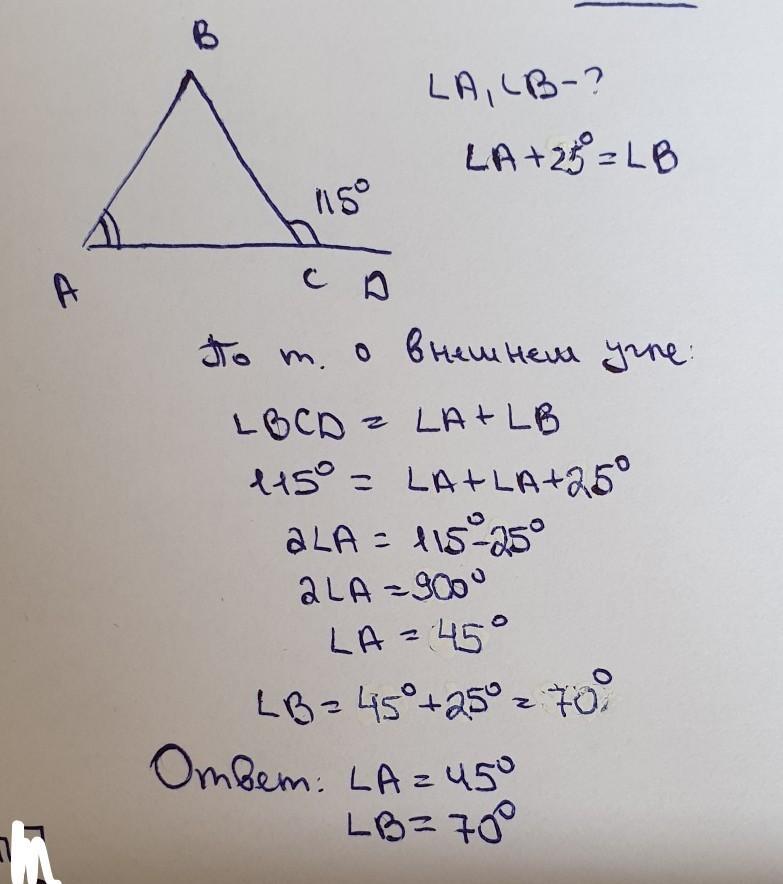 B
∠A, ∠B - ?
∠A + 25° = ∠B
115°
A
C D
По т. о внешнем угле:
∠BCD = ∠A + ∠B
115° = ∠A + ∠A + 25°
2∠A = 115° - 25°
2∠A = 900°
∠A = 45°
∠B = 45° + 25° = 70°
Ответ: ∠A = 45°
∠B = 70°